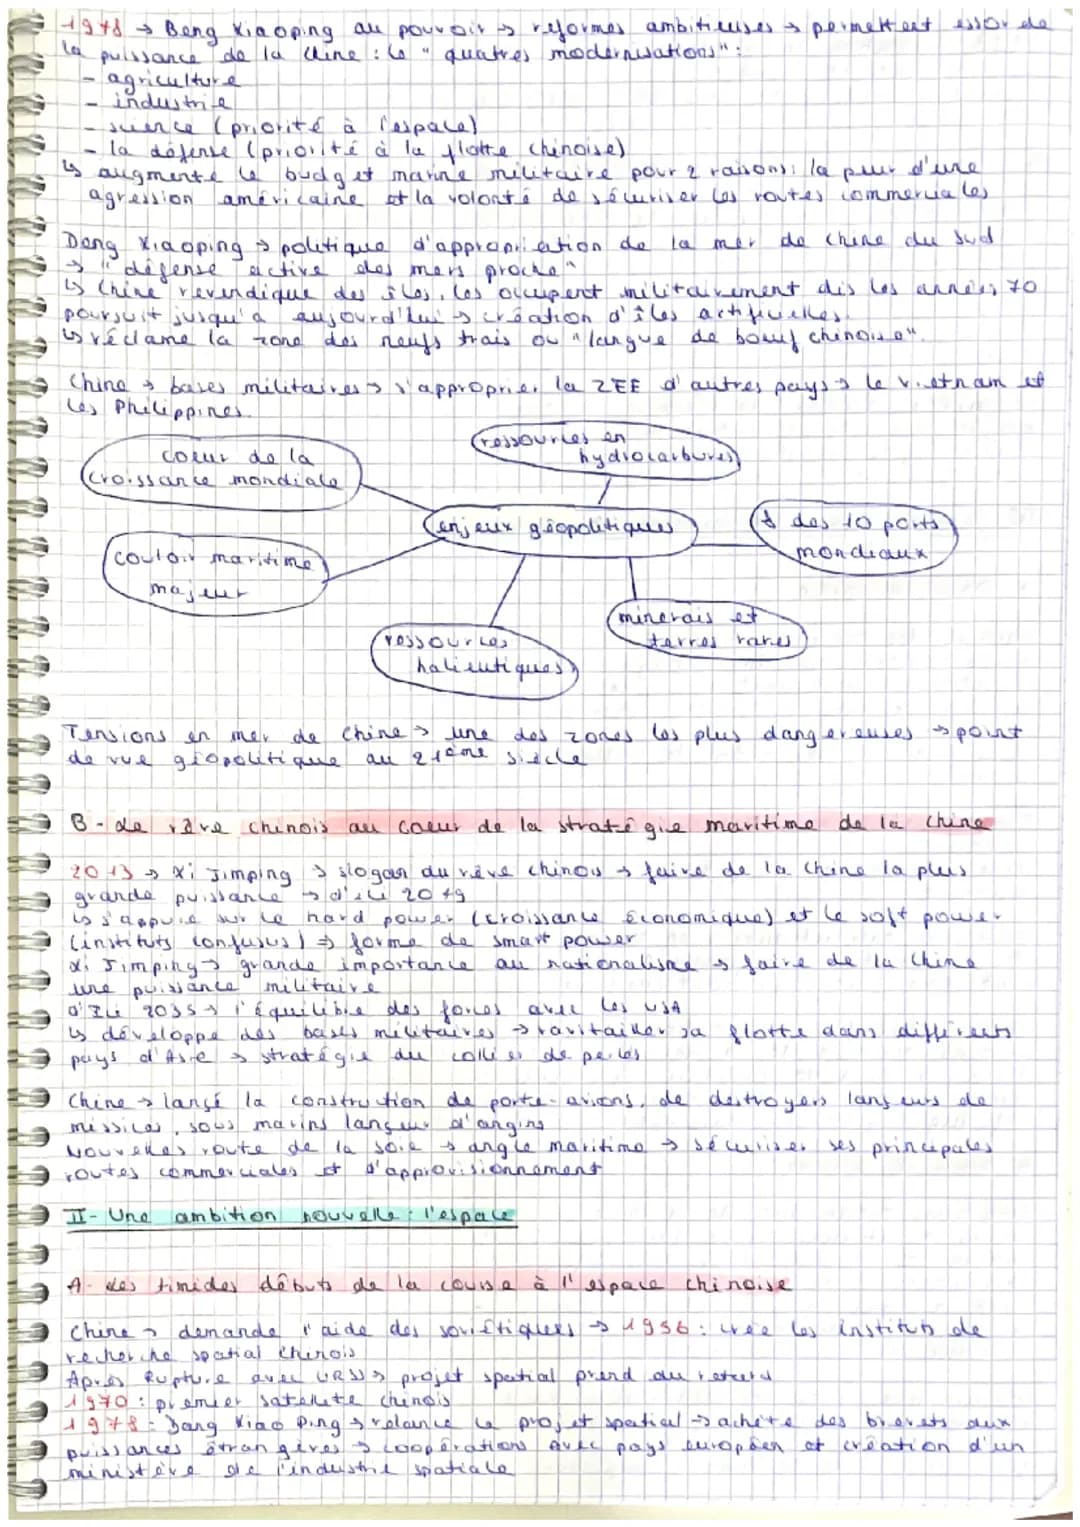 1978 → Deng Xiaoping au pouvoir → réformes ambitieuses → permettent essor de
la puissance de la Chine : le "quatres modernisations" :
- agriculture
- industrie
- science (priorité à l'espace)
- la défense (priorité à la flotte chinoise)
↳ augmente le budget marine militaire pour 2 raisons : la peur d'une
agression américaine et la volonté de sécuriser les routes commerciales
Deng Xiaoping → politique d'appropriation de la mer de Chine du Sud
→ "défense active des mers proche"
↳ Chine revendique des îles, les occupent militairement dès les années 70
poursuit jusqu'à aujourd'hui → création d'îles artificielles.
↳ réclame la zone des neufs traits ou "langue de boeuf chinoise".
Chine → bases militaires → s'approprier la ZEE d'autres pays → le Vietnam et
les Philippines.
coeur de la
croissance mondiale
ressources en
hydrocarbures
enjeux géopolitiques
8 des 10 ports
mondiaux
couloir maritime
majeur
minerais et
terres rares
ressources
halieutiques
Tensions en mer de Chine → une des zones les plus dangereuses → point
de vue géopolitique au 21ème siècle
B - Le rêve chinois au coeur de la stratégie maritime de la Chine
2013 → Xi Jimping → slogan du rêve chinois → faire de la Chine la plus
grande puissance → d'ici 2049
↳ s'appuie sur le hard power (croissance économique) et le soft power
(instituts confusus) ⇒ forme de smart power
Xi Jimping → grande importance au nationalisme → faire de la Chine
une puissance militaire
d'ici 2035 → l'équilibre des forces avec les USA
↳ développe des bases militaires → ravitailler sa flotte dans différents
pays d'Asie → stratégie du collier de perles
Chine → lançé la construction de porte-avions, de destroyers lanceurs de
missiles, sous marins lanceur d'angins
Nouvelles route de la soie → angle maritime → sécuriser ses principales
routes commerciales et d'approvisionnement
II- Une ambition nouvelle : l'espace
A- Les timides débuts de la course à l'espace chinoise
Chine → demande l'aide des soviétiques → 1956 : crée les instituts de
recherche spatial chinois
Après rupture avec URSS → projet spatial prend du retard
1970 : premier satellite chinois
1978 : Dang Xiao Ping → relance le projet spatial → achète des brevets aux
puissances étrangères → coopérations avec pays européen et création d'un
ministère de l'industrie spatiale